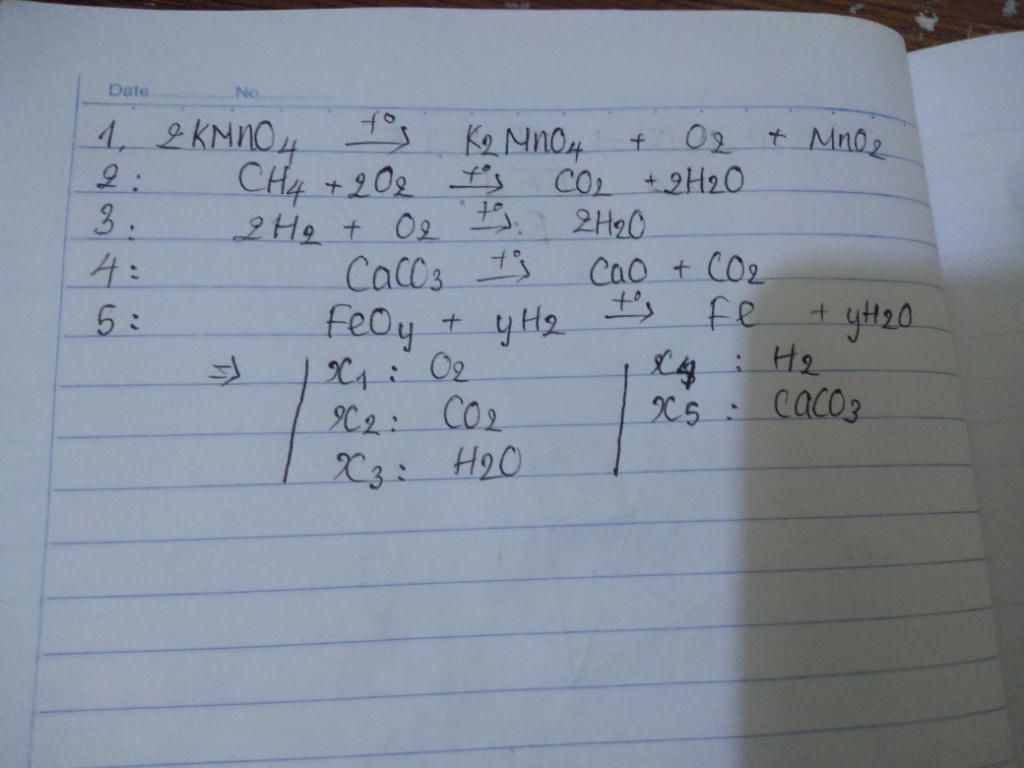 Date No
1, 2KMnO4 t°→ K2MnO4 + O2 + MnO2
2: CH4 + 2O2 t°→ CO2 + 2H2O
3: 2H2 + O2 t°→ 2H2O
4: CaCO3 t°→ CaO + CO2
5: FeOy + yH2 t°→ Fe + yH2O
=> x1 : O2 x4 : H2
x2 : CO2 x5 : CaCO3
x3 : H2O